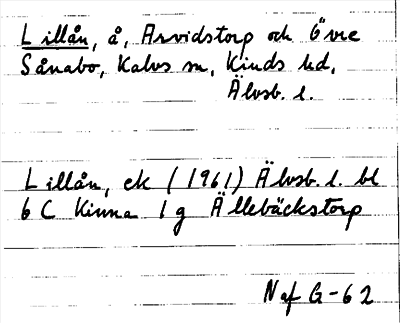 Lillån, å, Arvidstorp och Övre
Sånabo, Kalvs sn, Kinds hd,
Älvsb. l.
Lillån, ek (1961) Älvsb. l. bl
6 C Kinna 1 g Ällebäckstorp
Naf G-62